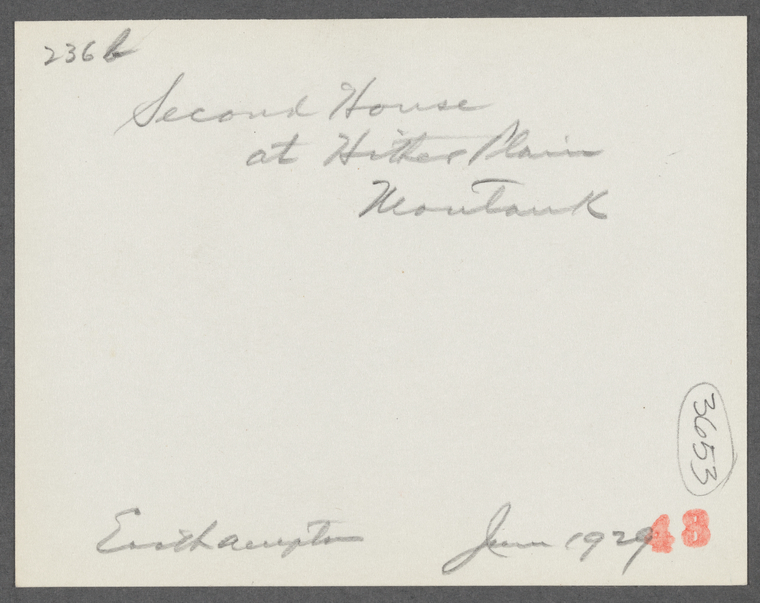 236b
Second House
at Hither Plain
Montauk
3653
Easthampton June 1929 48